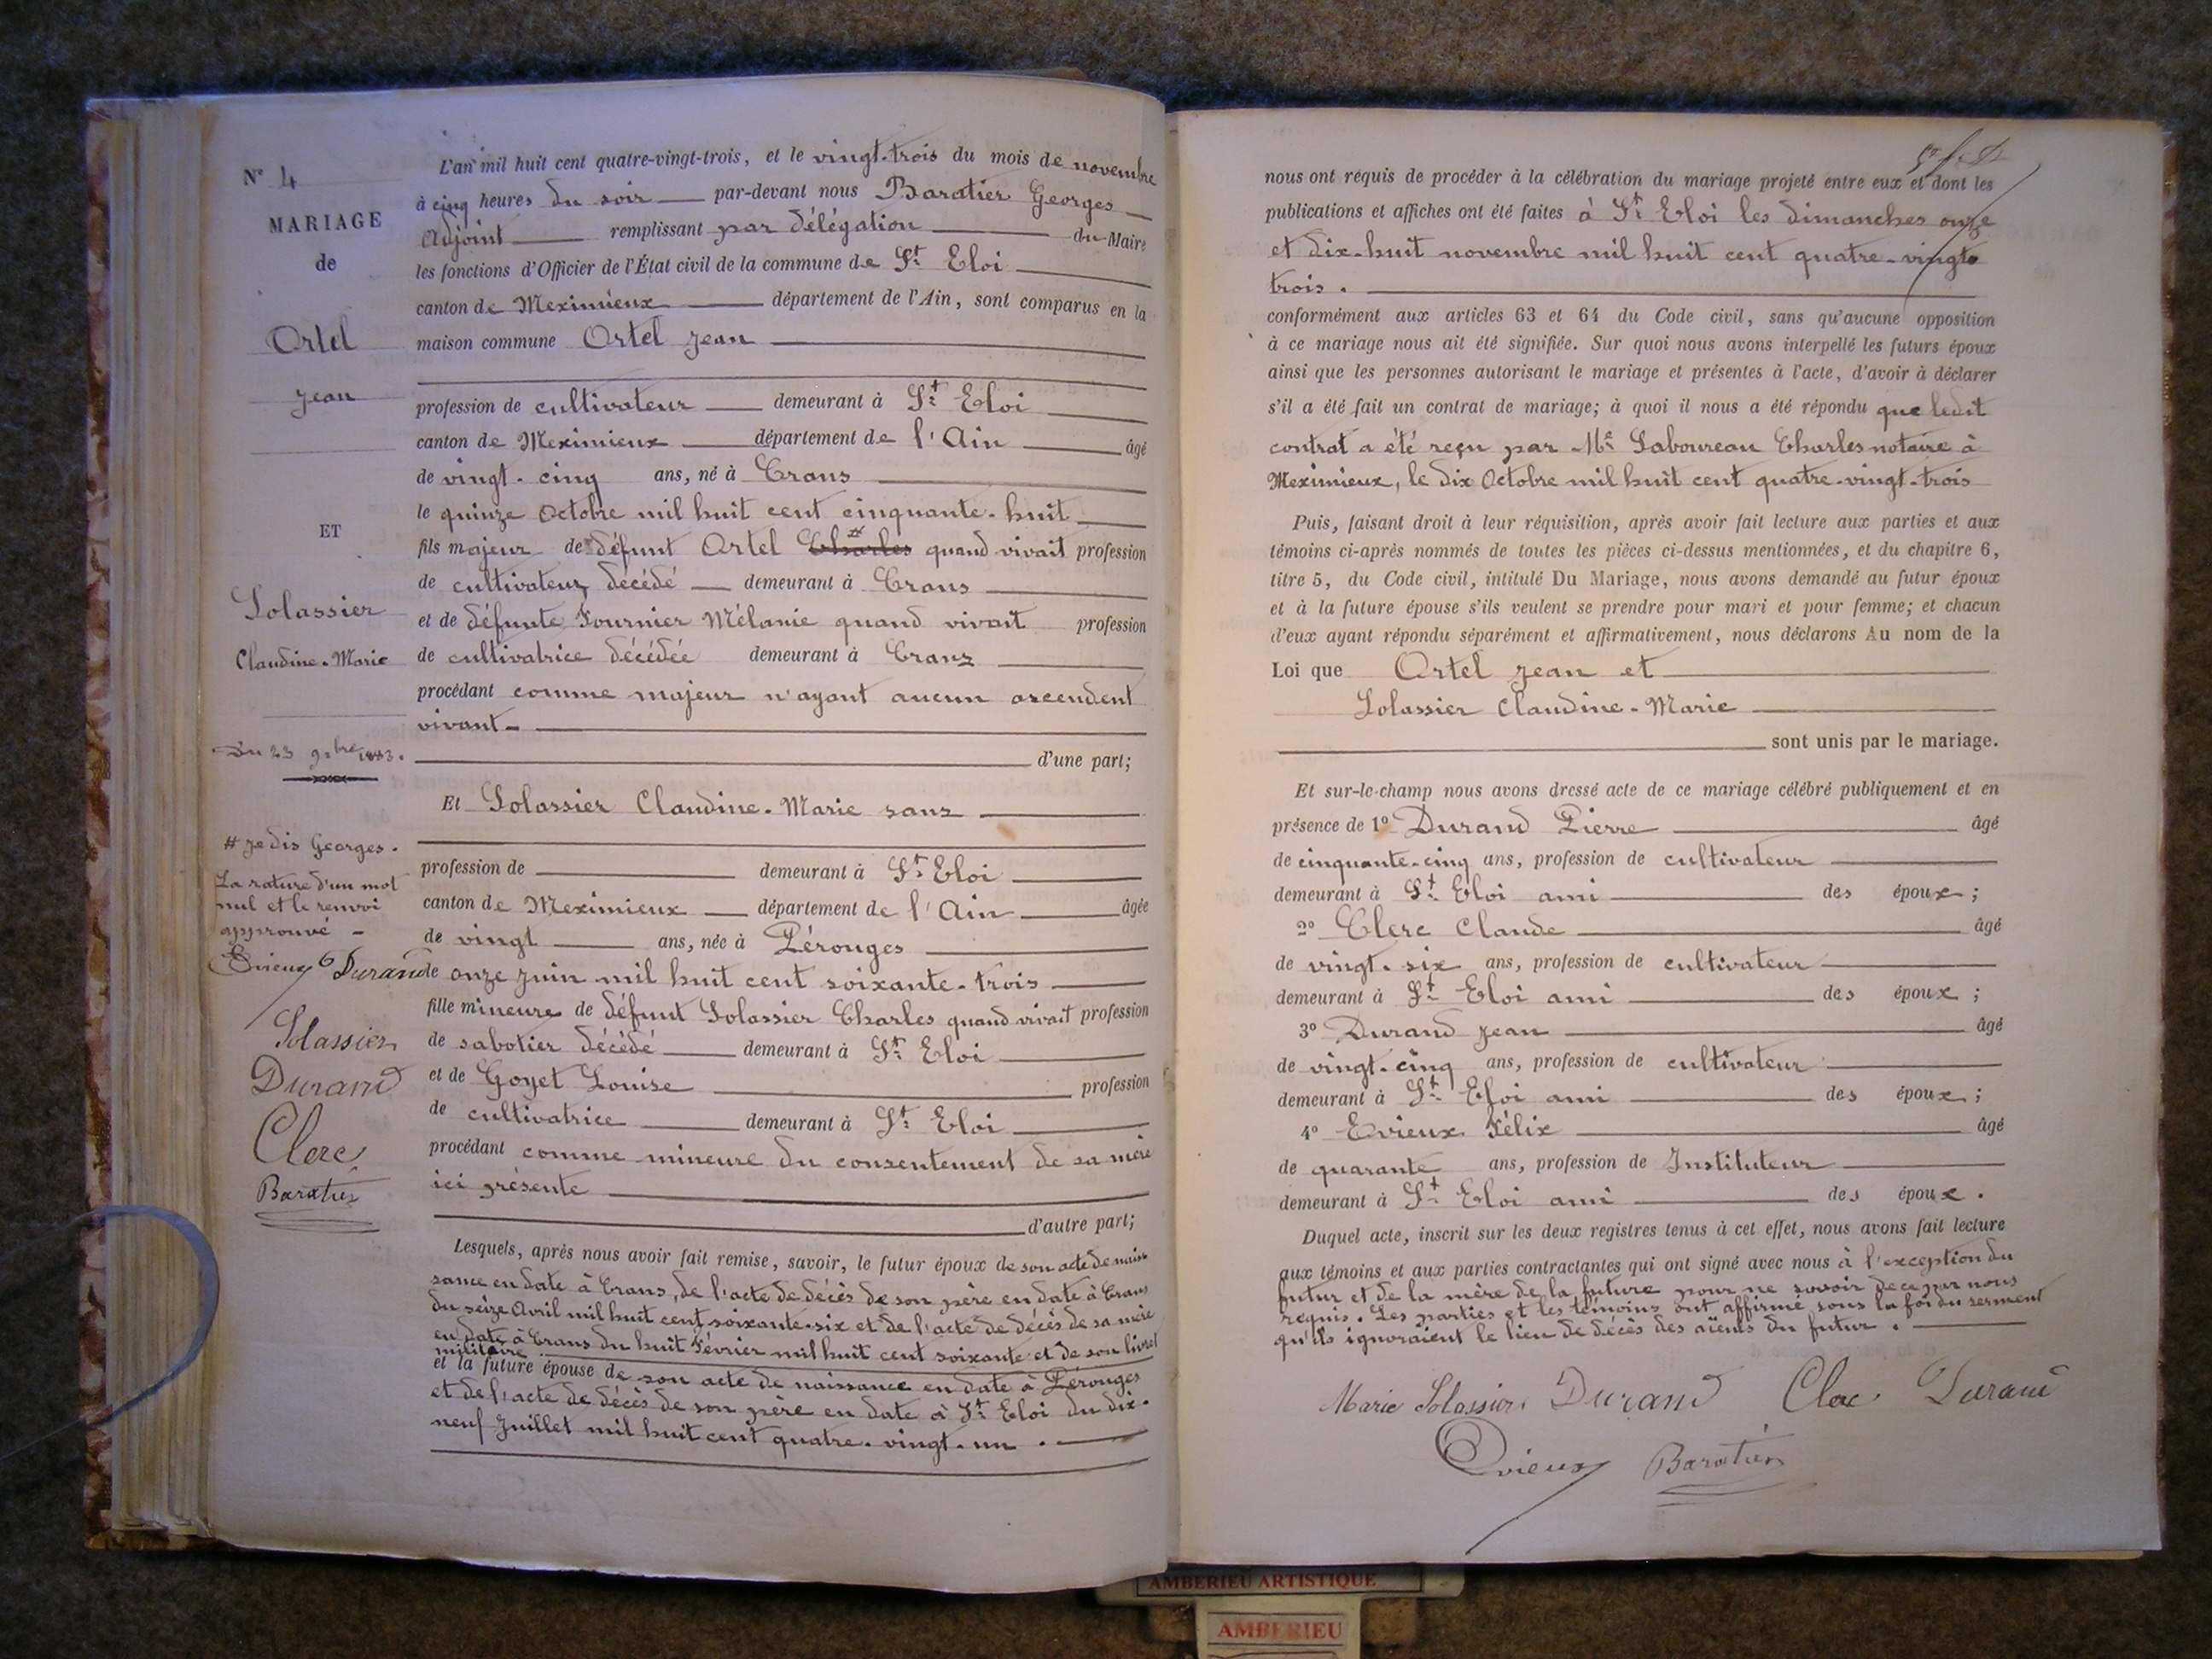 N° 4
MARIAGE
de
Ortel
Jean
ET
Solassier
Claudine-Marie
Du 23 9bre 1883.
# Je dis Georges.
La rature d'un mot
nul et le renvoi
approuvé -
Evieux Durand
Solassier
Durand
Clerc
Baratier
L'an mil huit cent quatre-vingt-trois, et le vingt-trois du mois de novembre
à cinq heures du soir par-devant nous Baratier Georges
Adjoint remplissant par délégation du Maire
les fonctions d'Officier de l'État civil de la commune de St Eloi
canton de Meximieux département de l'Ain, sont comparus en la
maison commune Ortel Jean
profession de cultivateur demeurant à St Eloi
canton de Meximieux département de l'Ain âgé
de vingt-cinq ans, né à Crans
le quinze Octobre mil huit cent cinquante-huit
fils majeur de défunt Ortel Charles # quand vivait profession
de cultivateur, décédé demeurant à Crans
et de défunte Fournier Mélanie quand vivait profession
de cultivatrice décédée demeurant à Crans
procédant comme majeur n'ayant aucun ascendent
vivant-
d'une part;
Et Solassier Claudine-Marie sans
profession de demeurant à St Eloi
canton de Meximieux département de l'Ain âgée
de vingt ans, née à Pérouges
le onze Juin mil huit cent soixante-trois
fille mineure de défunt Solassier Charles quand vivait profession
de sabotier décédé demeurant à St Eloi
et de Goyet Louise profession
de cultivatrice demeurant à St Eloi
procédant comme mineure du consentement de sa mère
ici présente
d'autre part;
Lesquels, après nous avoir fait remise, savoir, le futur époux de son acte de nais-
sance en date à Crans, de l'acte de décès de son père en date à Crans
du seize Avril mil huit cent soixante-six et de l'acte de décès de sa mère
en date à Crans du huit Février mil huit cent soixante et de son livret
militaire
et la future épouse de son acte de naissance en date à Pérouges
et de l'acte de décès de son père en date à St Eloi du dix-
neuf Juillet mil huit cent quatre-vingt-un.
nous ont requis de procéder à la célébration du mariage projeté entre eux et dont les
publications et affiches ont été faites à St Eloi les dimanches onze
et dix-huit novembre mil huit cent quatre-vingt
trois.
conformément aux articles 63 et 64 du Code civil, sans qu'aucune opposition
à ce mariage nous ait été signifiée. Sur quoi nous avons interpellé les futurs époux
ainsi que les personnes autorisant le mariage et présentes à l'acte, d'avoir à déclarer
s'il a été fait un contrat de mariage; à quoi il nous a été répondu que ledit
contrat a été reçu par Me Laboureau Charles notaire à
Meximieux, le dix Octobre mil huit cent quatre-vingt-trois
Puis, faisant droit à leur réquisition, après avoir fait lecture aux parties et aux
témoins ci-après nommés de toutes les pièces ci-dessus mentionnées, et du chapitre 6,
titre 5, du Code civil, intitulé Du Mariage, nous avons demandé au futur époux
et à la future épouse s'ils veulent se prendre pour mari et pour femme; et chacun
d'eux ayant répondu séparément et affirmativement, nous déclarons Au nom de la
Loi que Ortel Jean et
Solassier Claudine-Marie
sont unis par le mariage.
Et sur-le-champ nous avons dressé acte de ce mariage célébré publiquement et en
présence de 1° Durand Pierre âgé
de cinquante-cinq ans, profession de cultivateur
demeurant à St Eloi ami des époux;
2° Clerc Claude âgé
de vingt-six ans, profession de cultivateur
demeurant à St Eloi ami des époux;
3° Durand Jean âgé
de vingt-cinq ans, profession de cultivateur
demeurant à St Eloi ami des époux;
4° Evieux Félix âgé
de quarante ans, profession de Instituteur
demeurant à St Eloi ami des époux.
Duquel acte, inscrit sur les deux registres tenus à cet effet, nous avons fait lecture
aux témoins et aux parties contractantes qui ont signé avec nous à l'exception du
futur et de la mère de la future pour ne savoir de ce par nous
requis. Les parties et les témoins ont affirmé sous la foi du serment
qu'ils ignoraient le lieu de décès des aïeuls du futur.
Marie Solassier Durand Clerc Durand
Evieux Baratier
AMBERIEU ARTISTIQUE
AMBERIEU